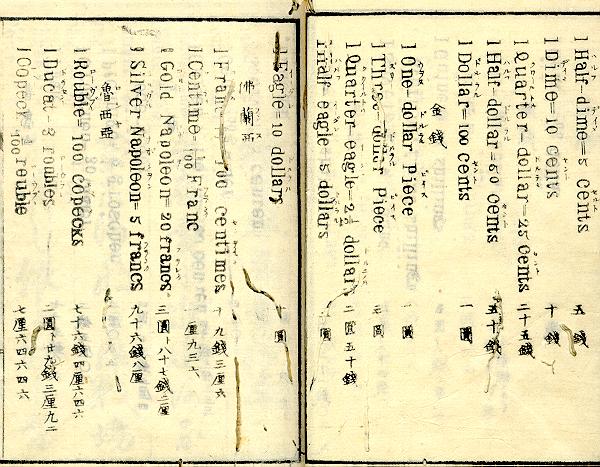 1 Half-dime=5 Cents 五錢
1 Dime=10 Cents 十錢
1 Quarter-dollar=25 Cents 二十五錢
1 Half-dollar=50 Cents 五十錢
1 Dollar=100 Cents 一圓
金錢
1 One-dollar Piece 一圓
1 Three-dollar Piece 三圓
1 Quarter eagle=2½ dollars 二圓五十錢
1 Half eagle=5 dollars 圓
1 Eagle=10 dollars 十圓
佛蘭西
1 Franc=100 Centimes 十九錢三厘六
1 Centime=1/100 Franc 一厘九三六
1 Gold Napoleon=20 francs. 三圓ト八十七錢二厘
1 Silver Napoleon=5 francs 九十六錢八厘
魯西亜
1 Rouble=100 Copecks 七十六錢四厘六四六
1 Ducat=3 roubles 二圓ト廿九錢三厘九二
1 Copeck=1/100 rouble 七厘六四六四六